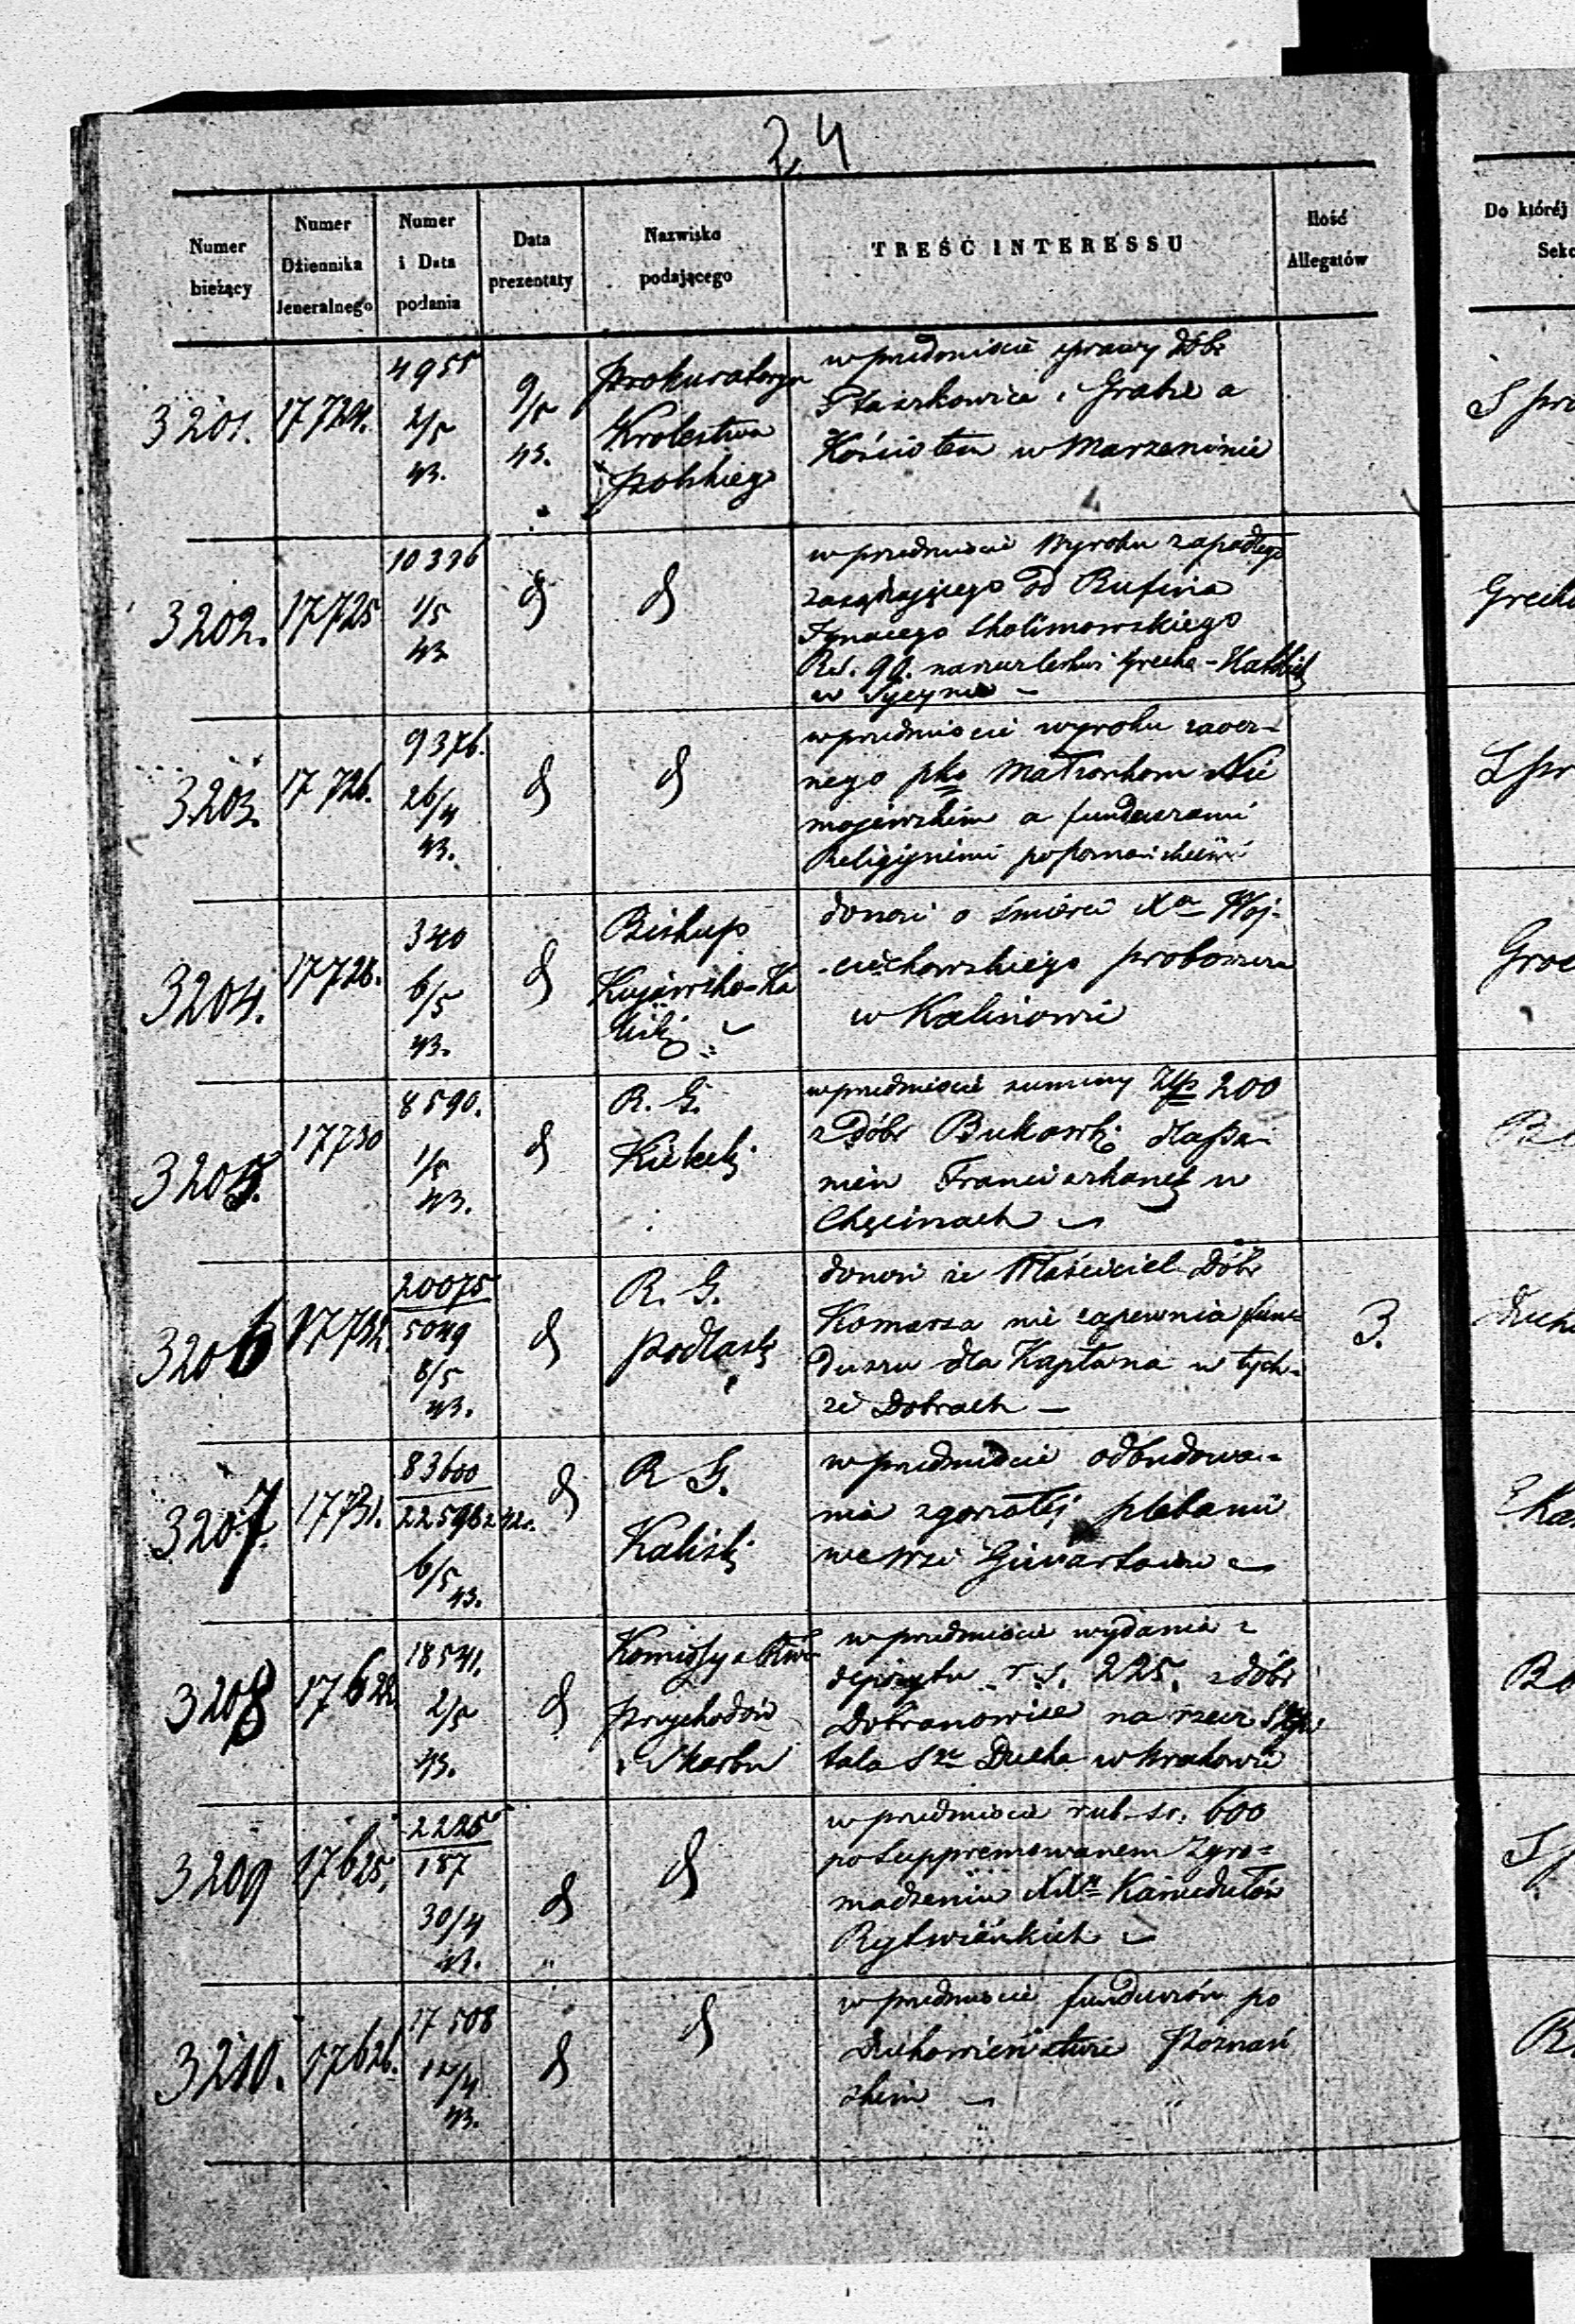 24
Numer bieżący
Numer Dziennika Jeneralnego
Numer i Data podania
Data prezentaty
Nazwisko podającego
TREŚĆ INTERESSU
Ilość Allegatów
Do któréj
Sekc
3201.
17724.
4955
2/5
43.
9/5
43.
Prokuratorya
Krolestwa
Polskiego
w przedmiocie sprawy dóbr
Ptaszkowice i Grabie a
Kościołem w Marzeninie
3202.
17725
10336
1/5
43
w przedmiocie Wyroku zapadłego
zasądzającego od Rufina
Ignacego Skolimowskiego
Rs. 90. na rzecz
w
3203.
17726.
9376.
26/4
43.
w przedmiocie wyroku zaocz-
nego pko Małżonkom Nie
mojewskim a funduszami
Religijnemi
3204.
17728.
340
6/5
43.
Biskup
Kujawsko-Ka
liski
donosi o śmierci Xa Woj-
-ciechowskiego proboszcza
w Kalinowie
3205.
17730
8590.
1/5
43.
R. G.
Kielecki
w przedmiocie summy Złp 200
z Dóbr Bukowki dla Pa-
nien Franciszkanek w
Chęcinach
3206
17732.
20075
5049
8/5
43.
R. G.
Podlaski
donosi że Właściciel Dóbr
Komarza nie zapewnia fun-
duszu dla Kapłana w tych-
że Dobrach —
3.
3207.
17731.
83600
22596
6/5
43.
R G.
Kaliski
w przedmiocie odbudowa-
nia zgorzałej plebanii
we wsi
3208
17622.
18541.
2/5
43.
Kommissya
Przychodów
Skarbu
w przedmiocie wydania z
depozytu r. s. 225. z dóbr
Dobranowice na rzecz Szpi
tala Sgo Ducha w Krakowie
3209
17625.
2225
187
30/4
43.
w przedmiocie rub. sr. 600
po suppremowanem Zgro-
madzeniu XXw Kamedułów
Rytwiańskich
3210.
17626.
17508
43.
w przedmiocie funduszów po
Duchowieństwie Poznań
skiem